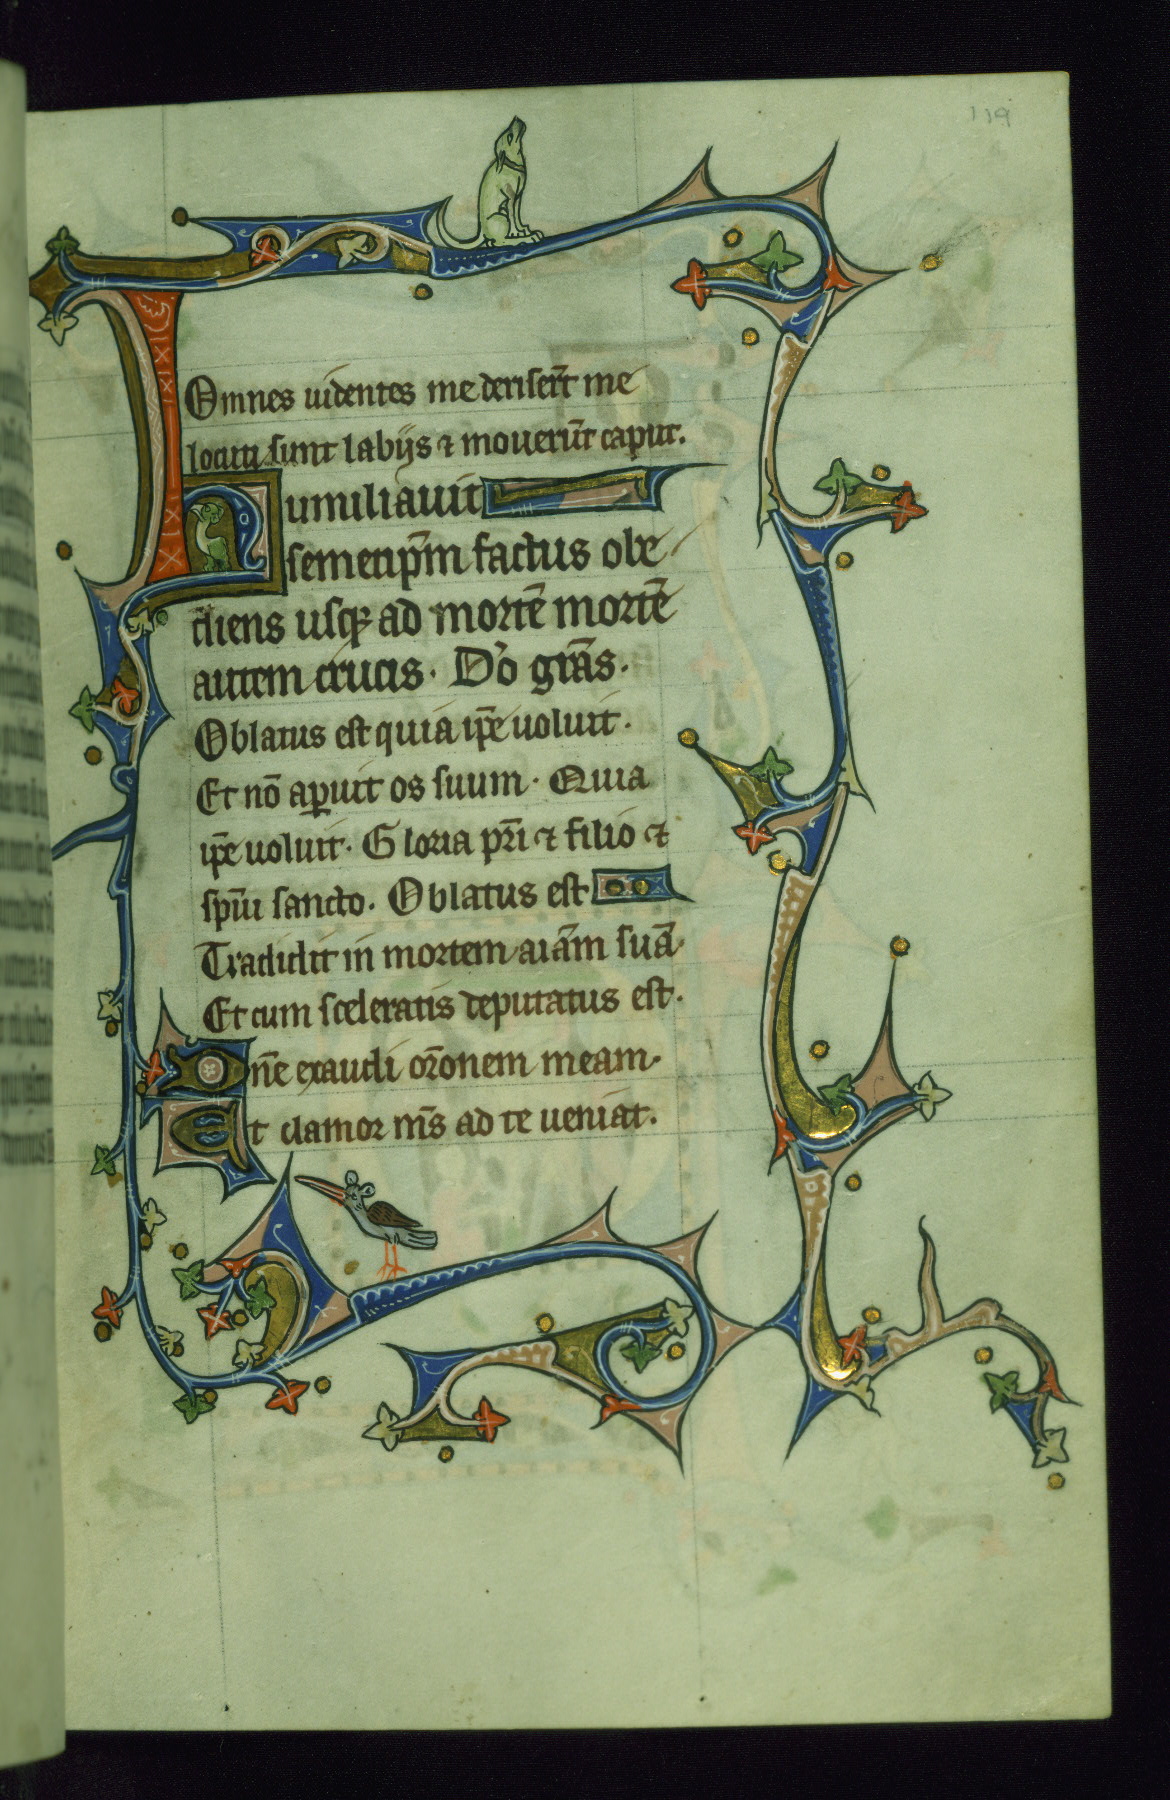 119
Omnes uidentes me deriser̄t me
locuti sunt labijs ⁊ mouerūt caput.
Humiliauit
semetip̄m factus obe
diens usqꝫ ad mortē mortē
autem crucis. Dō gr̄as.
Oblatus est quia ip̄e uoluit.
Et nō apuit os suum. Quia
ip̄e uoluit. Gloria pr̄i ⁊ filio ⁊
sp̄ui sancto. Oblatus est
Tradidit in mortem aīam suā.
Et cum sceleratis deputatus est.
Dn̄e exaudi or̄onem meam.
Et clamor m̄s ad te ueniat.